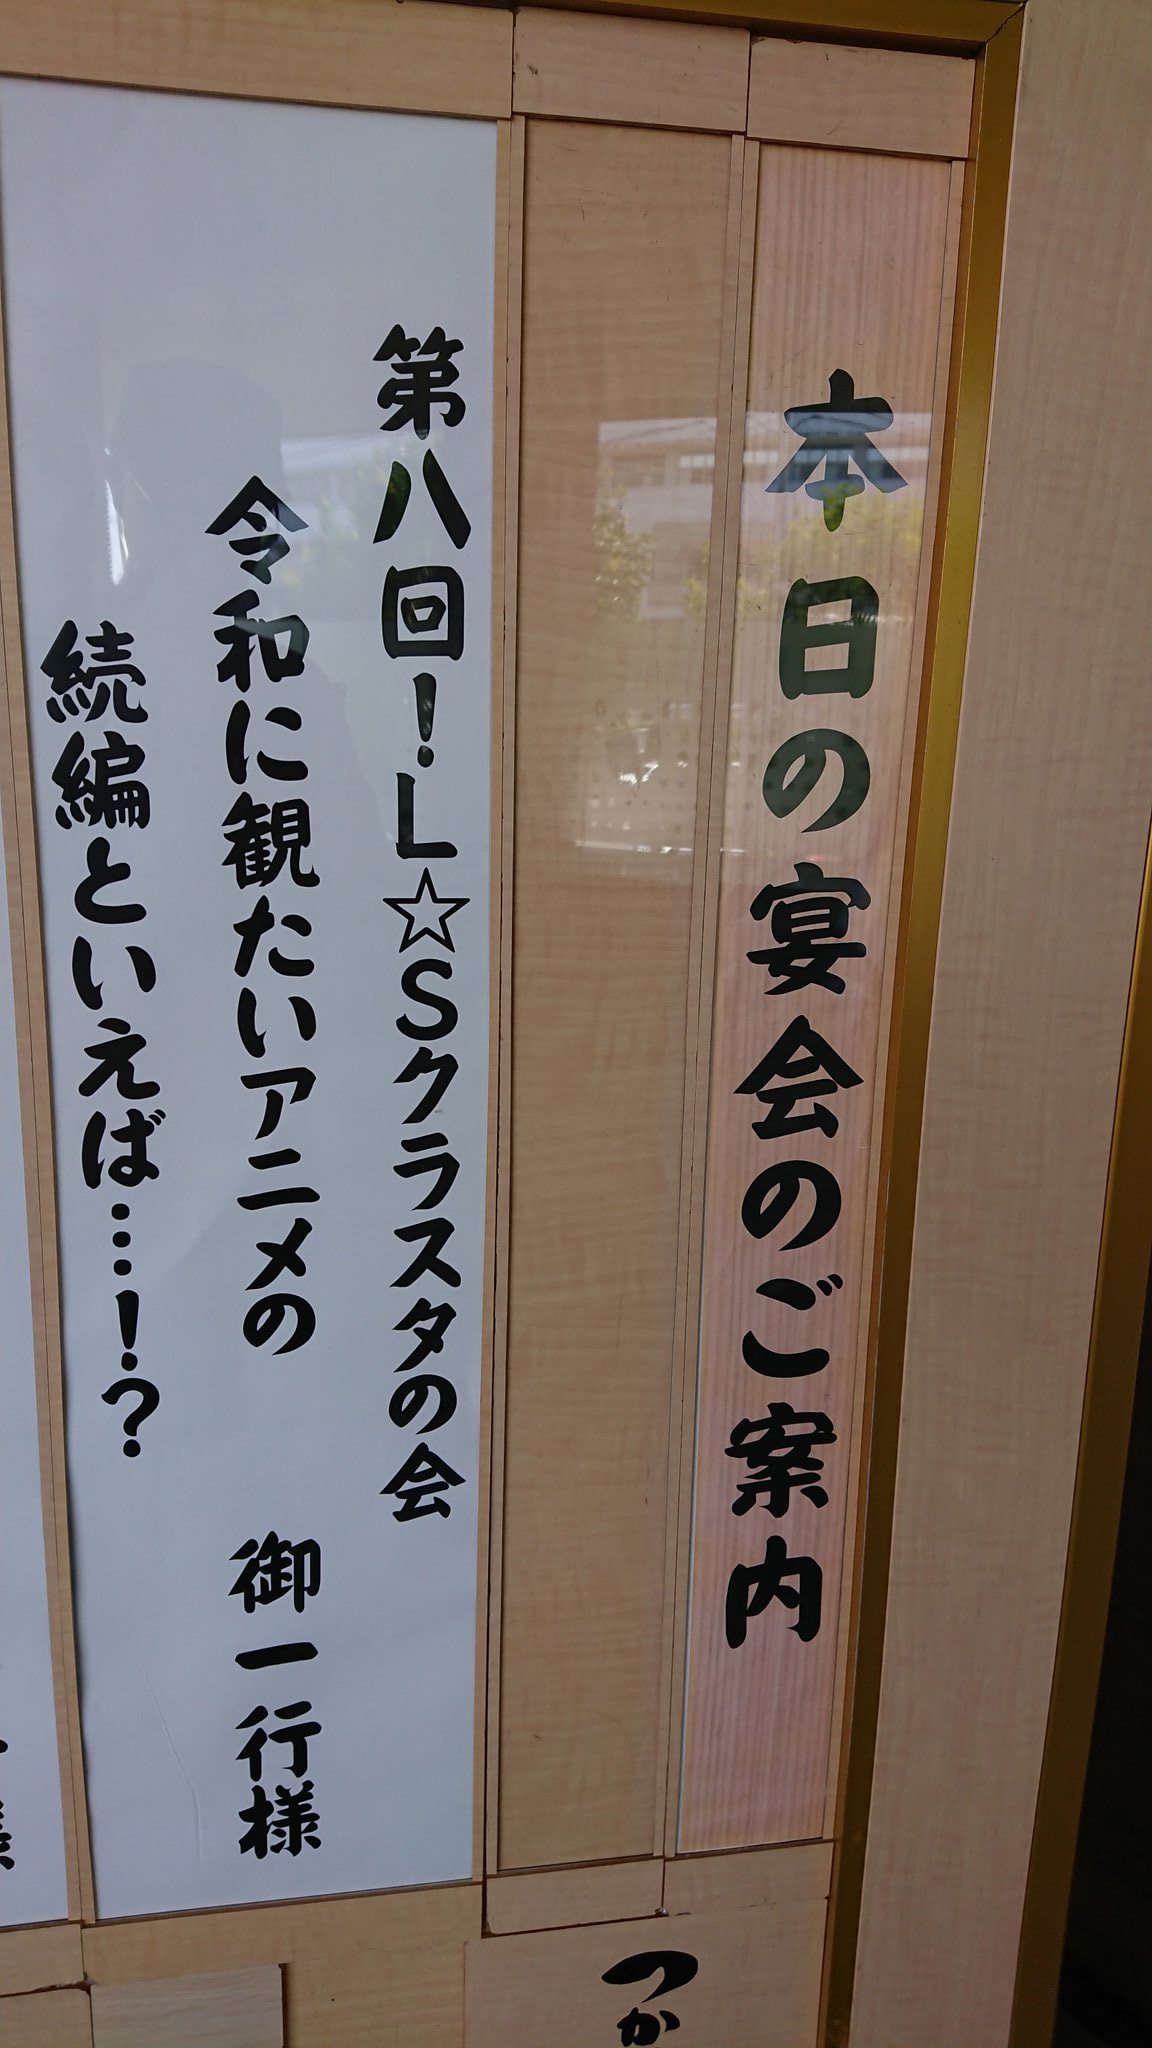 本日の宴会のご案内
第八回！L☆Sクラスタの会
令和に観たいアニメの
続編といえば…！？
御一行様
様
つか